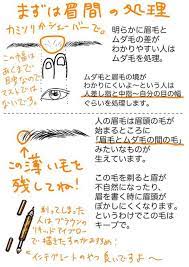 まずは眉間の処理
カミソリかシェーバーで。
この幅は
あくまで
目安なので
マストでは
ないです。
明らかに眉毛と
ムダ毛の差が
わかりやすい人は
ムダ毛を処理。
ムダ毛と眉毛の境が
わかりにくいよ～という人は
人差し指と中指=自分の目の幅
ぐらいを処理します。
この薄い毛を
残してね!
人の眉毛は眉頭の毛が
始まるところに
「眉毛とムダ毛の間の毛」
みたいなものが
生えています。
この毛を剃ると眉が
不自然になったり、
眉を書く時に眉頭が
ぼかしにくくなります。
というわけでこの毛は
キープで。
剃ってしまった
人はブラウンの
リキッドアイブロー
で描き足すのがおすすめ!
インテグレートのやつ良いですよ～